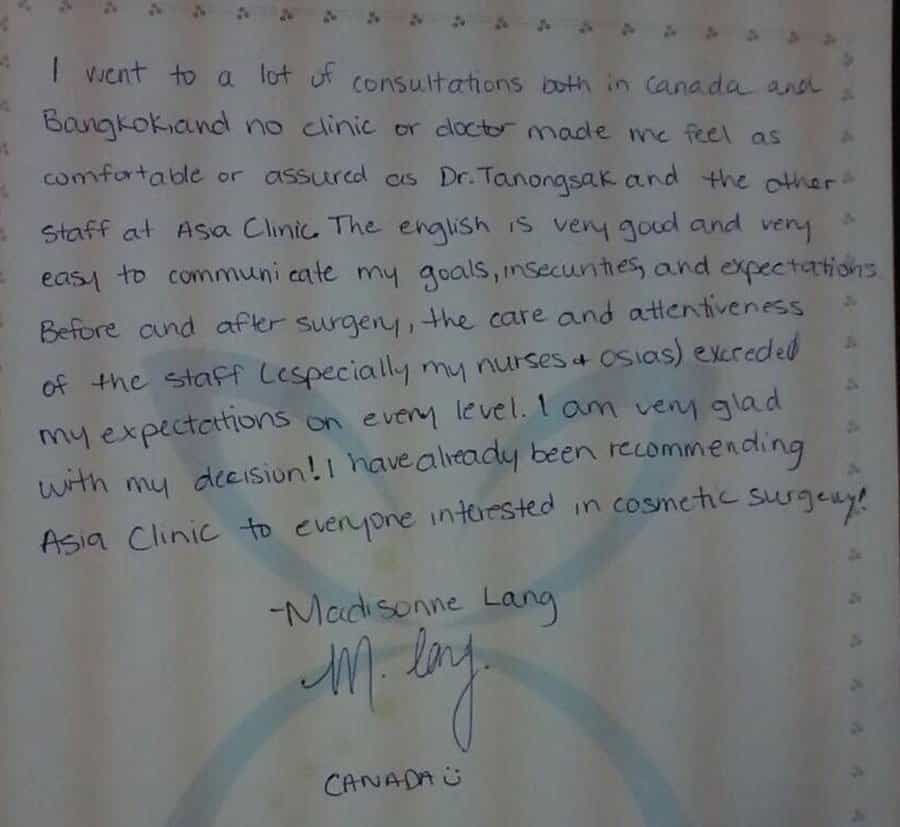 I went to a lot of consultations both in Canada and
Bangkok, and no clinic or doctor made me feel as
comfortable or assured as Dr. Tanongsak and the other
staff at Asia Clinic. The english is very good and very
easy to communicate my goals, insecurities, and expectations.
Before and after surgery, the care and attentiveness
of the staff (especially my nurses + osias) exceeded
my expectations on every level. I am very glad
with my decision! I have already been recommending
Asia Clinic to everyone interested in cosmetic surgery!
-Madisonne Lang
M. Lang.
CANADA Ü